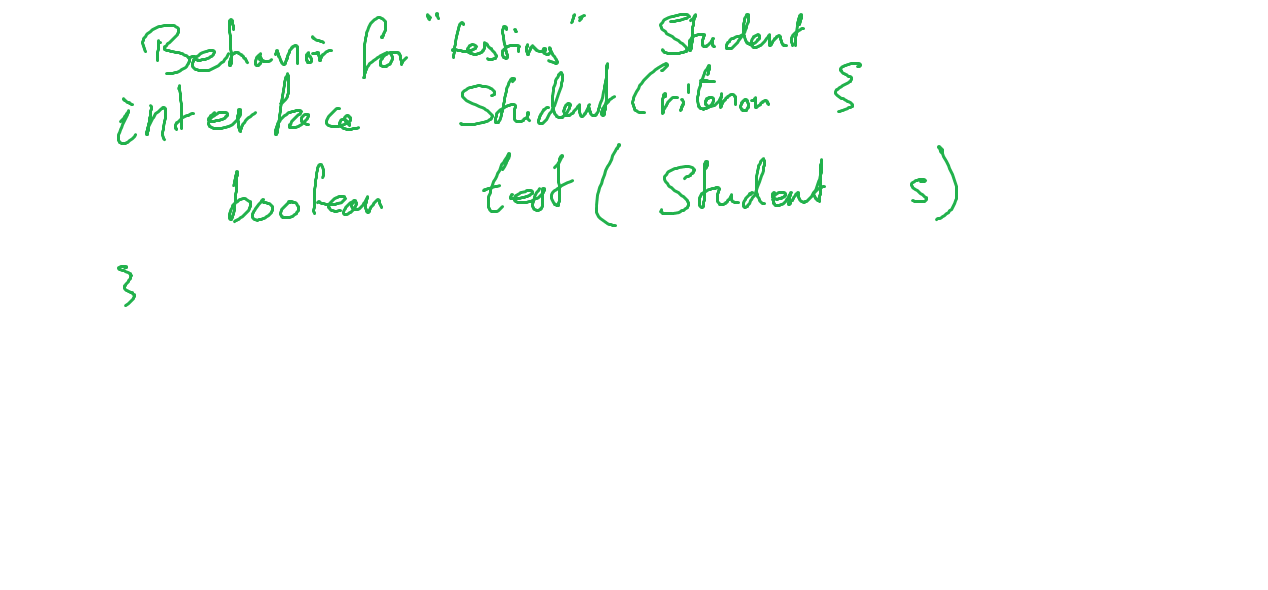 Behavior for "testing" Student
interface StudentCriterion {
boolean test(Student s)
}